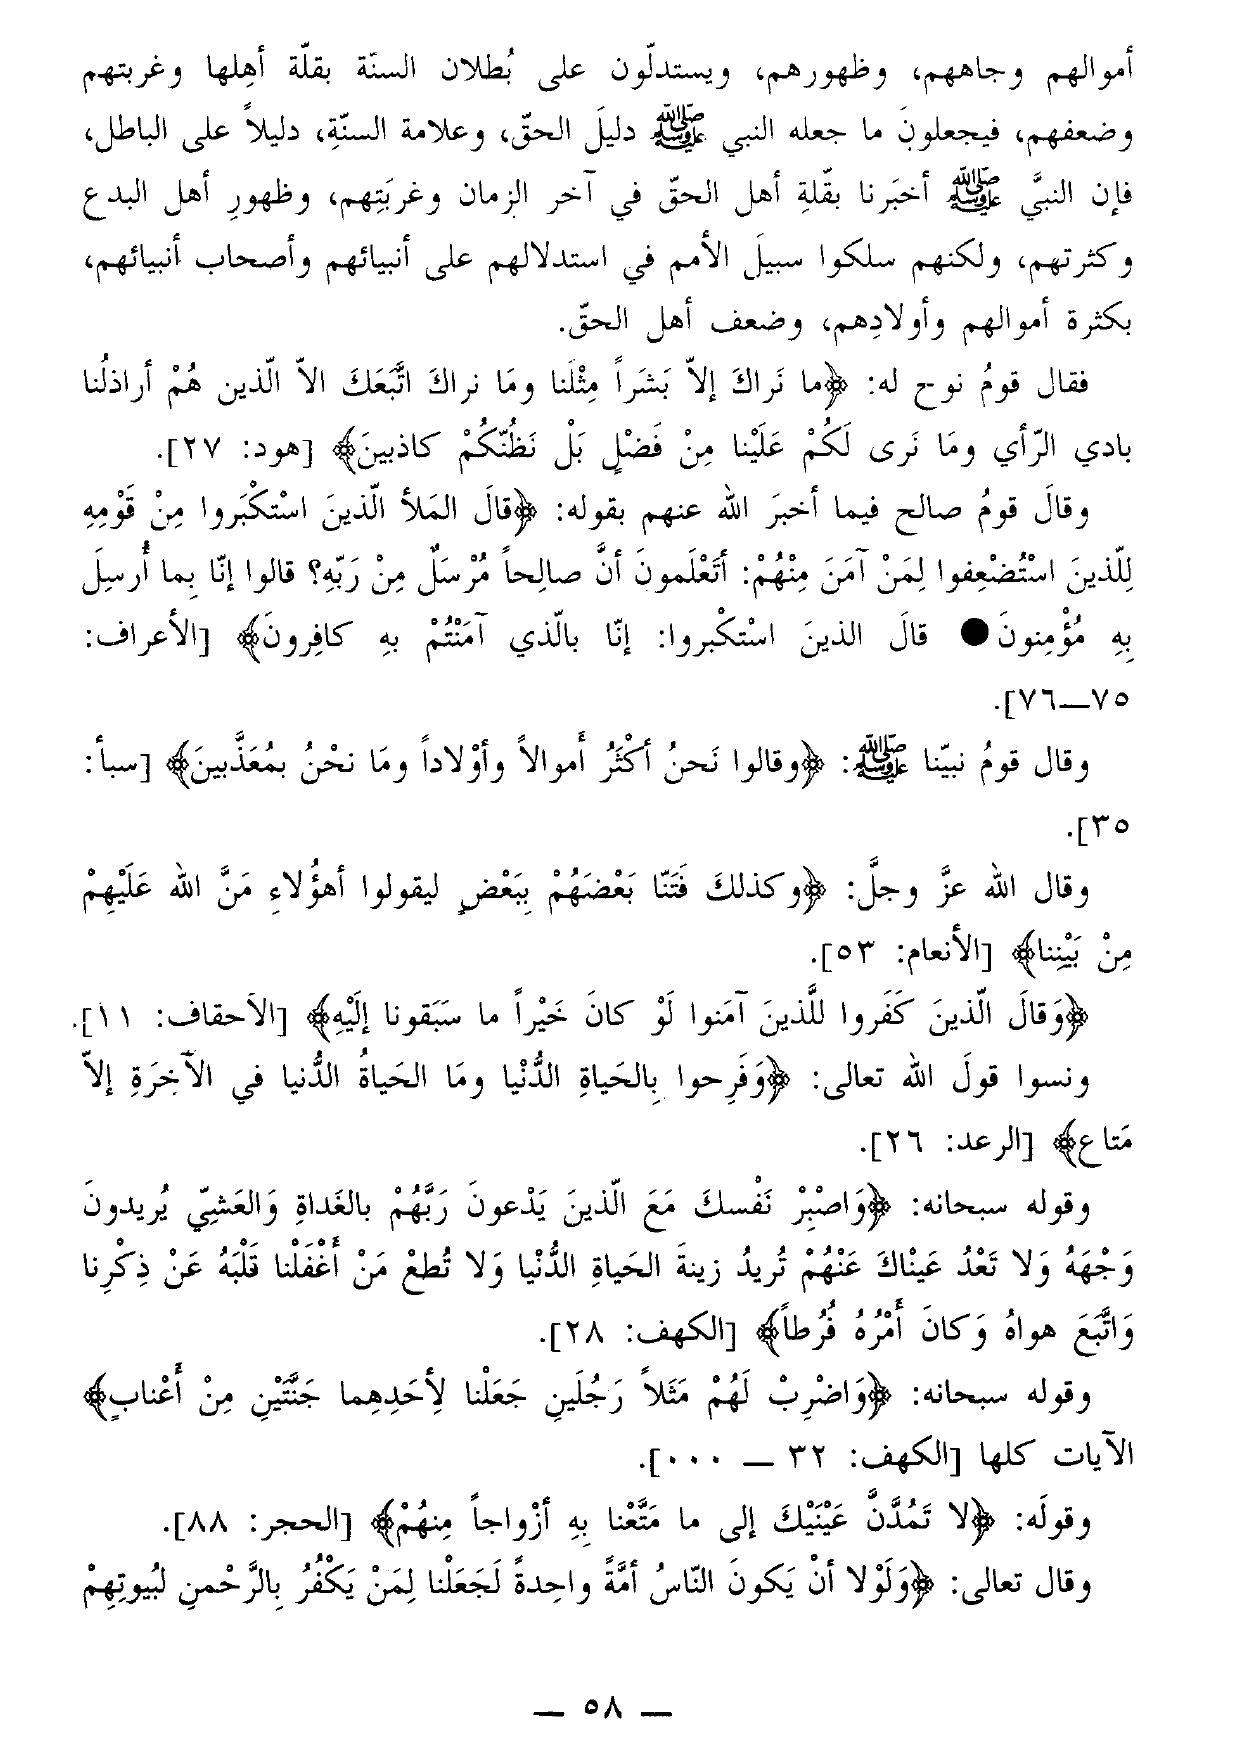 أموالهم وجاههم، وظهورهم، ويستدلّون على بُطلان السنّة بقلّة أهِلها وغربتهم
وضعفهم، فيجعلونَ ما جعله النبي ﷺ دليلَ الحقّ، وعلامة السنّةِ، دليلاً على الباطل،
فإن النبيَّ ﷺ أخبَرنا بقلّةِ أهل الحقّ في آخر الزمان وغربَتِهم، وظهورِ أهل البدع
وكثرتهم، ولكنهم سلكوا سبيلَ الأمم في استدلالهم على أنبيائهم وأصحاب أنبيائهم،
بكثرة أموالهم وأولادِهم، وضعف أهل الحقّ.
فقال قومُ نوح له: ﴿ما نَراكَ إلاّ بَشَراً مِثْلَنا ومَا نراكَ اتَّبَعَكَ الاّ الّذين هُمْ أراذلُنا
بادي الرّأي ومَا نَرى لَكُمْ عَلَيْنا مِنْ فَضْلٍ بَلْ نَظُنّكُمْ كاذبينَ﴾ [هود: ٢٧].
وقالَ قومُ صالح فيما أخبرَ الله عنهم بقوله: ﴿قالَ المَلأ الّذينَ اسْتكْبَروا مِنْ قَوْمِهِ
لِلّذينَ اسْتُضْعِفوا لِمَنْ آمَنَ مِنْهُمْ: أتَعْلَمونَ أنَّ صالِحاً مُرْسَلٌ مِنْ رَبّهِ؟ قالوا إنّا بِما أُرسِلَ
بِهِ مُؤْمِنونَ ● قالَ الذينَ اسْتكْبروا: إنّا بالّذي آمَنْتُمْ بهِ كافِرونَ﴾ [الأعراف:
٧٥ــ٧٦].
وقال قومُ نبيّنا ﷺ: ﴿وقالوا نَحنُ أكْثَرُ أَموالاً وأوْلاداً ومَا نحْنُ بمُعَذَّبينَ﴾ [سبأ:
٣٥].
وقال الله عزَّ وجلَّ: ﴿وكذلكَ فَتَنّا بَعْضَهُمْ بِبَعْضٍ ليقولوا أهؤُلاءِ مَنَّ الله عَلَيْهِمْ
مِنْ بَيْنِنا﴾ [الأنعام: ٥٣].
﴿وَقالَ الّذينَ كَفَروا للَّذينَ آمَنوا لَوْ كانَ خَيْراً ما سَبَقونا إلَيْهِ﴾ [الأحقاف: ١١].
ونسوا قولَ الله تعالى: ﴿وَفَرِحوا بِالحَياةِ الدُّنْيا ومَا الحَياةُ الدُّنيا في الآخِرَةِ إلاّ
مَتاع﴾ [الرعد: ٢٦].
وقوله سبحانه: ﴿وَاصْبِرْ نَفْسكَ مَعَ الّذينَ يَدْعونَ رَبَّهُمْ بالغَداةِ وَالعَشيّ يُريدونَ
وَجْهَهُ وَلا تَعْدُ عَيْناكَ عَنْهُمْ تُريدُ زينةَ الحَياةِ الدُّنْيا وَلا تُطعْ مَنْ أَغْفَلْنا قَلْبَهُ عَنْ ذِكْرِنا
وَاتَّبَعَ هواهُ وَكانَ أَمْرُهُ فُرُطاً﴾ [الكهف: ٢٨].
وقوله سبحانه: ﴿وَاضْرِبْ لَهُمْ مَثَلاً رَجُلَينِ جَعَلْنا لِأحَدِهِما جَنَّتَيْنِ مِنْ أَعْنابٍ﴾
الآيات كلها [الكهف: ٣٢ ــ ٠٠٠].
وقولَه: ﴿لا تَمُدَّنَّ عَيْنَيْكَ إلى ما مَتَّعْنا بِهِ أزْواجاً مِنهُمْ﴾ [الحجر: ٨٨].
وقال تعالى: ﴿وَلَوْلا أنْ يَكونَ النّاسُ أمَّةً واحِدةً لَجَعَلْنا لِمَنْ يَكْفُرُ بِالرَّحْمنِ لبُيوتِهِمْ
ــ ٥٨ ــ